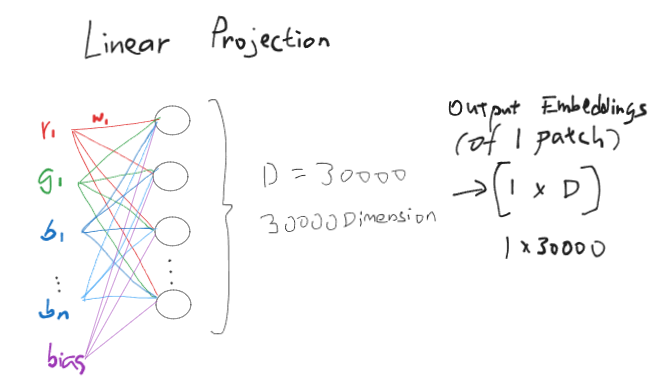 Linear Projection
r1
w1
g1
b1
bn
bias
D = 30000
30000 Dimension
Output Embeddings
(of 1 patch)
→ [1 x D]
1 x 30000